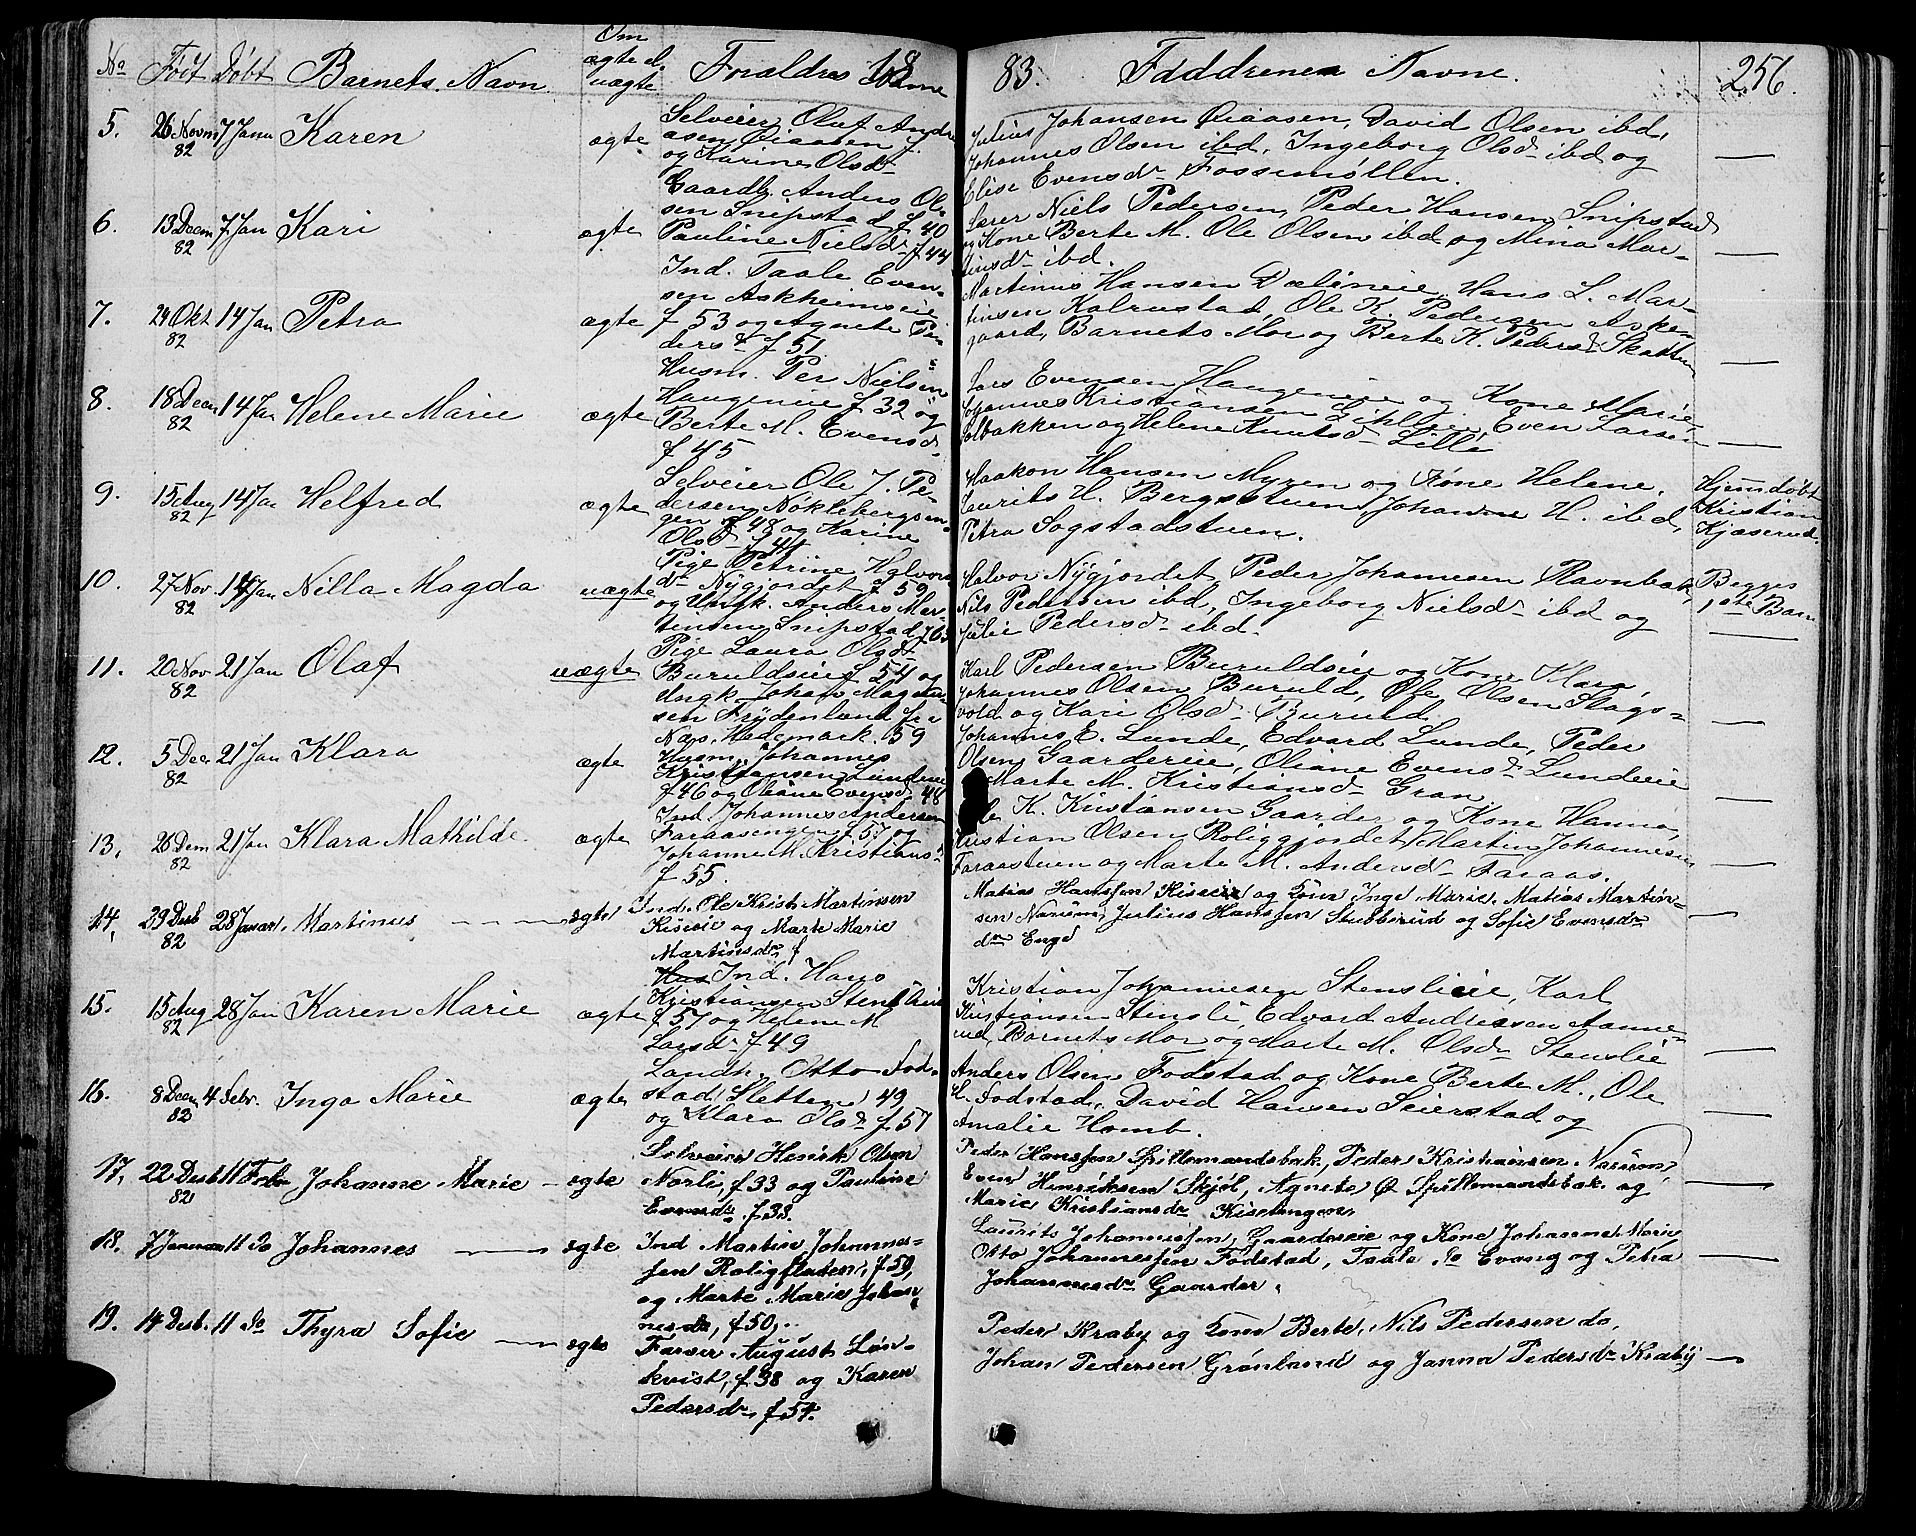 No Født Døbt Barnets Navn. Om ægte el. uægte Foreldres Navne
1883. Faddrenes Navne. 256.
5. 26 Novm 82 7 Janu Karen ægte
Selveier Olaf Andre
asen Øiaasen f.
og Karine Olsdr
Julius Johansen Øiaasen, David Olsen ibd,
Johannes Olsen ibd, Ingeborg Olsdr ibd og
Elise Evensdr Fossemøllen.
6. 13 Decm 82 7 Jan Kari ægte
Gaardb. Anders Ol-
sen Snipstad f. 40
Pauline Nielsdr f 44
Niels Pedersen, Peder Hansen Snipstad
og Kone Berte M. Ole Olsen ibd og Mina Mar-
tinsdr ibd.
7. 29 Okt 82 14 Jan Petra ægte
Ind. Taale Even-
sen Askheimseie
f 53 og Agnete Pe-
dersdr f 51
Martinus Hansen Dælineie, Hans L. Mar-
tinsen Kalrustad, Ole K. Pedersen Aske-
gaard, Barnets Mor og Berte K. Pedersdr Skatten
8. 18 Decm 82 14 Jan Helene Marie ægte
Husm. Per Nielsen
Haugeneie f 32 og
Berte M. Evensdr
f 45
Lars Evensen Haugeneie og Kone Marie,
Johannes Kristiansen Even Larsen
Solbakken og Helene Knutsdr Lille
9. 15 Aug 82 14 Jan Helfred ægte
Selveier Ole J. Pe-
dersen Nøklebergsen-
gen f 48 og Karine
Olsdr f 41
Haakon Hansen Myren og Kone Helene,
Laurits H. Bergsstuen, Johanne H. ibd,
Petra Sogstadstuen.
Hjemdøbt
Kristian
Kjæserud.
10. 27 Nov 82 14 Jan Nilla Magda uægte
Pige Petrine Halvors
dr Nygjordet f 59
og Ungk. Anders Mor-
tensen Snipstad f 63
Halvor Nygjordet, Peder Johannesen Ravnbak,
Nils Pedersen ibd, Ingeborg Nielsdr ibd og
Julie Pedersdr ibd.
Begges
1ste Barn
11. 20 Nov 82 21 Jan Olaf uægte
Pige Laura Olsdr
Buruldseie f 54 og
Ungk. Johan Magnus-
sen Frydenlund f i
Næs, Hedemark. 59
Karl Pedersen Buruldseie og Kone Klara,
Johannes Olsen Buruld, Ole Olsen Slags-
vold og Kari Olsdr Burud
12. 5 Dec 82 21 Jan Klara ægte
Husm. Johannes
Kristiansen Lundeie
f 46 og Oliane Evensdr 48
Johannes E. Lunde, Edvard Lunde, Peder
Olsen Gaardereie, Oliane Evensdr Lundeie
Marte M. Kristiansdr Gran
13. 26 Dem 82 21 Jan Klara Mathilde ægte
Ind. Johannes Andersen
Faraasengen f 57 og
Johanne M. Kristiansdr
f 55.
K. Kristiansen Gaarder og Kone Hanna,
Kristian Olsen Roligjordet, Martin Johannesen
Faraastuen og Marte M. Andersdr Faraas.
14. 29 Desb 82 28 Januar Martinus ægte
Ind. Ole Krist. Martinsen
Kiseeie og Marte Marie
Martinsdr f
Matias Hanssen Kiseeie og Kone Inge Marie, Matias Martin-
sen Narum, Julius Hanssen Stubberud og Sofie Evensdr
dr Enge
15. 15 Aug 82 28 Jan Karen Marie ægte
Hus Ind. Hans
Kristiansen Stenslieie
f 57 og Helene M
Larsdr f 49
Kristian Johannesen Stenslieie, Karl
Kristiansen Stensli, Edvard Andreasen Aanne-
rud, Barnets Mor og Marte M. Olsdr Stenslie
16. 8 Decm 82 4 Febr. Inga Marie ægte
Landh. Otto Fod-
stad Sletten 49
og Klara Olsdr f 57
Anders Olsen Fodstad og Kone Berte M., Ole
H. Fodstad, David Hansen Seierstad og
Amalie Homb.
17. 22 Desb 82 11 Febr Johanne Marie ægte
Selveier Henrik Olsen
Norli, f 33 og Pauline
Evensdr f 38.
Peder Hanssen Spillemandsbæk, Peder Kristiansen Narum,
Even Henriksen Skjöl, Agnete Ø Spillemandsbæk. og
Marie Kristiansdr Kiseengen.
18. 7 Januar 11 Do Johannes ægte
Ind Martin Johannes-
sen Roligfladen, f 59,
og Marte Marie Johan-
nesdr, f 50,
Laurits Johannessen, Gaardereie og Kone Johanne Marie
Otto Johannessen Fodstad, Taale Do Evang og Petra
Johannesdr Gaarder.
19. 14 Desb. 11 Do Thyra Sofie ægte
Farver August Løn-
kvist, f 38 og Karen
Pedersdr, f 54.
Peder Kraby og Kone Berte, Nils Pedersen do,
Johan Pedersen Grønland og Janna Pedersdr Kraby